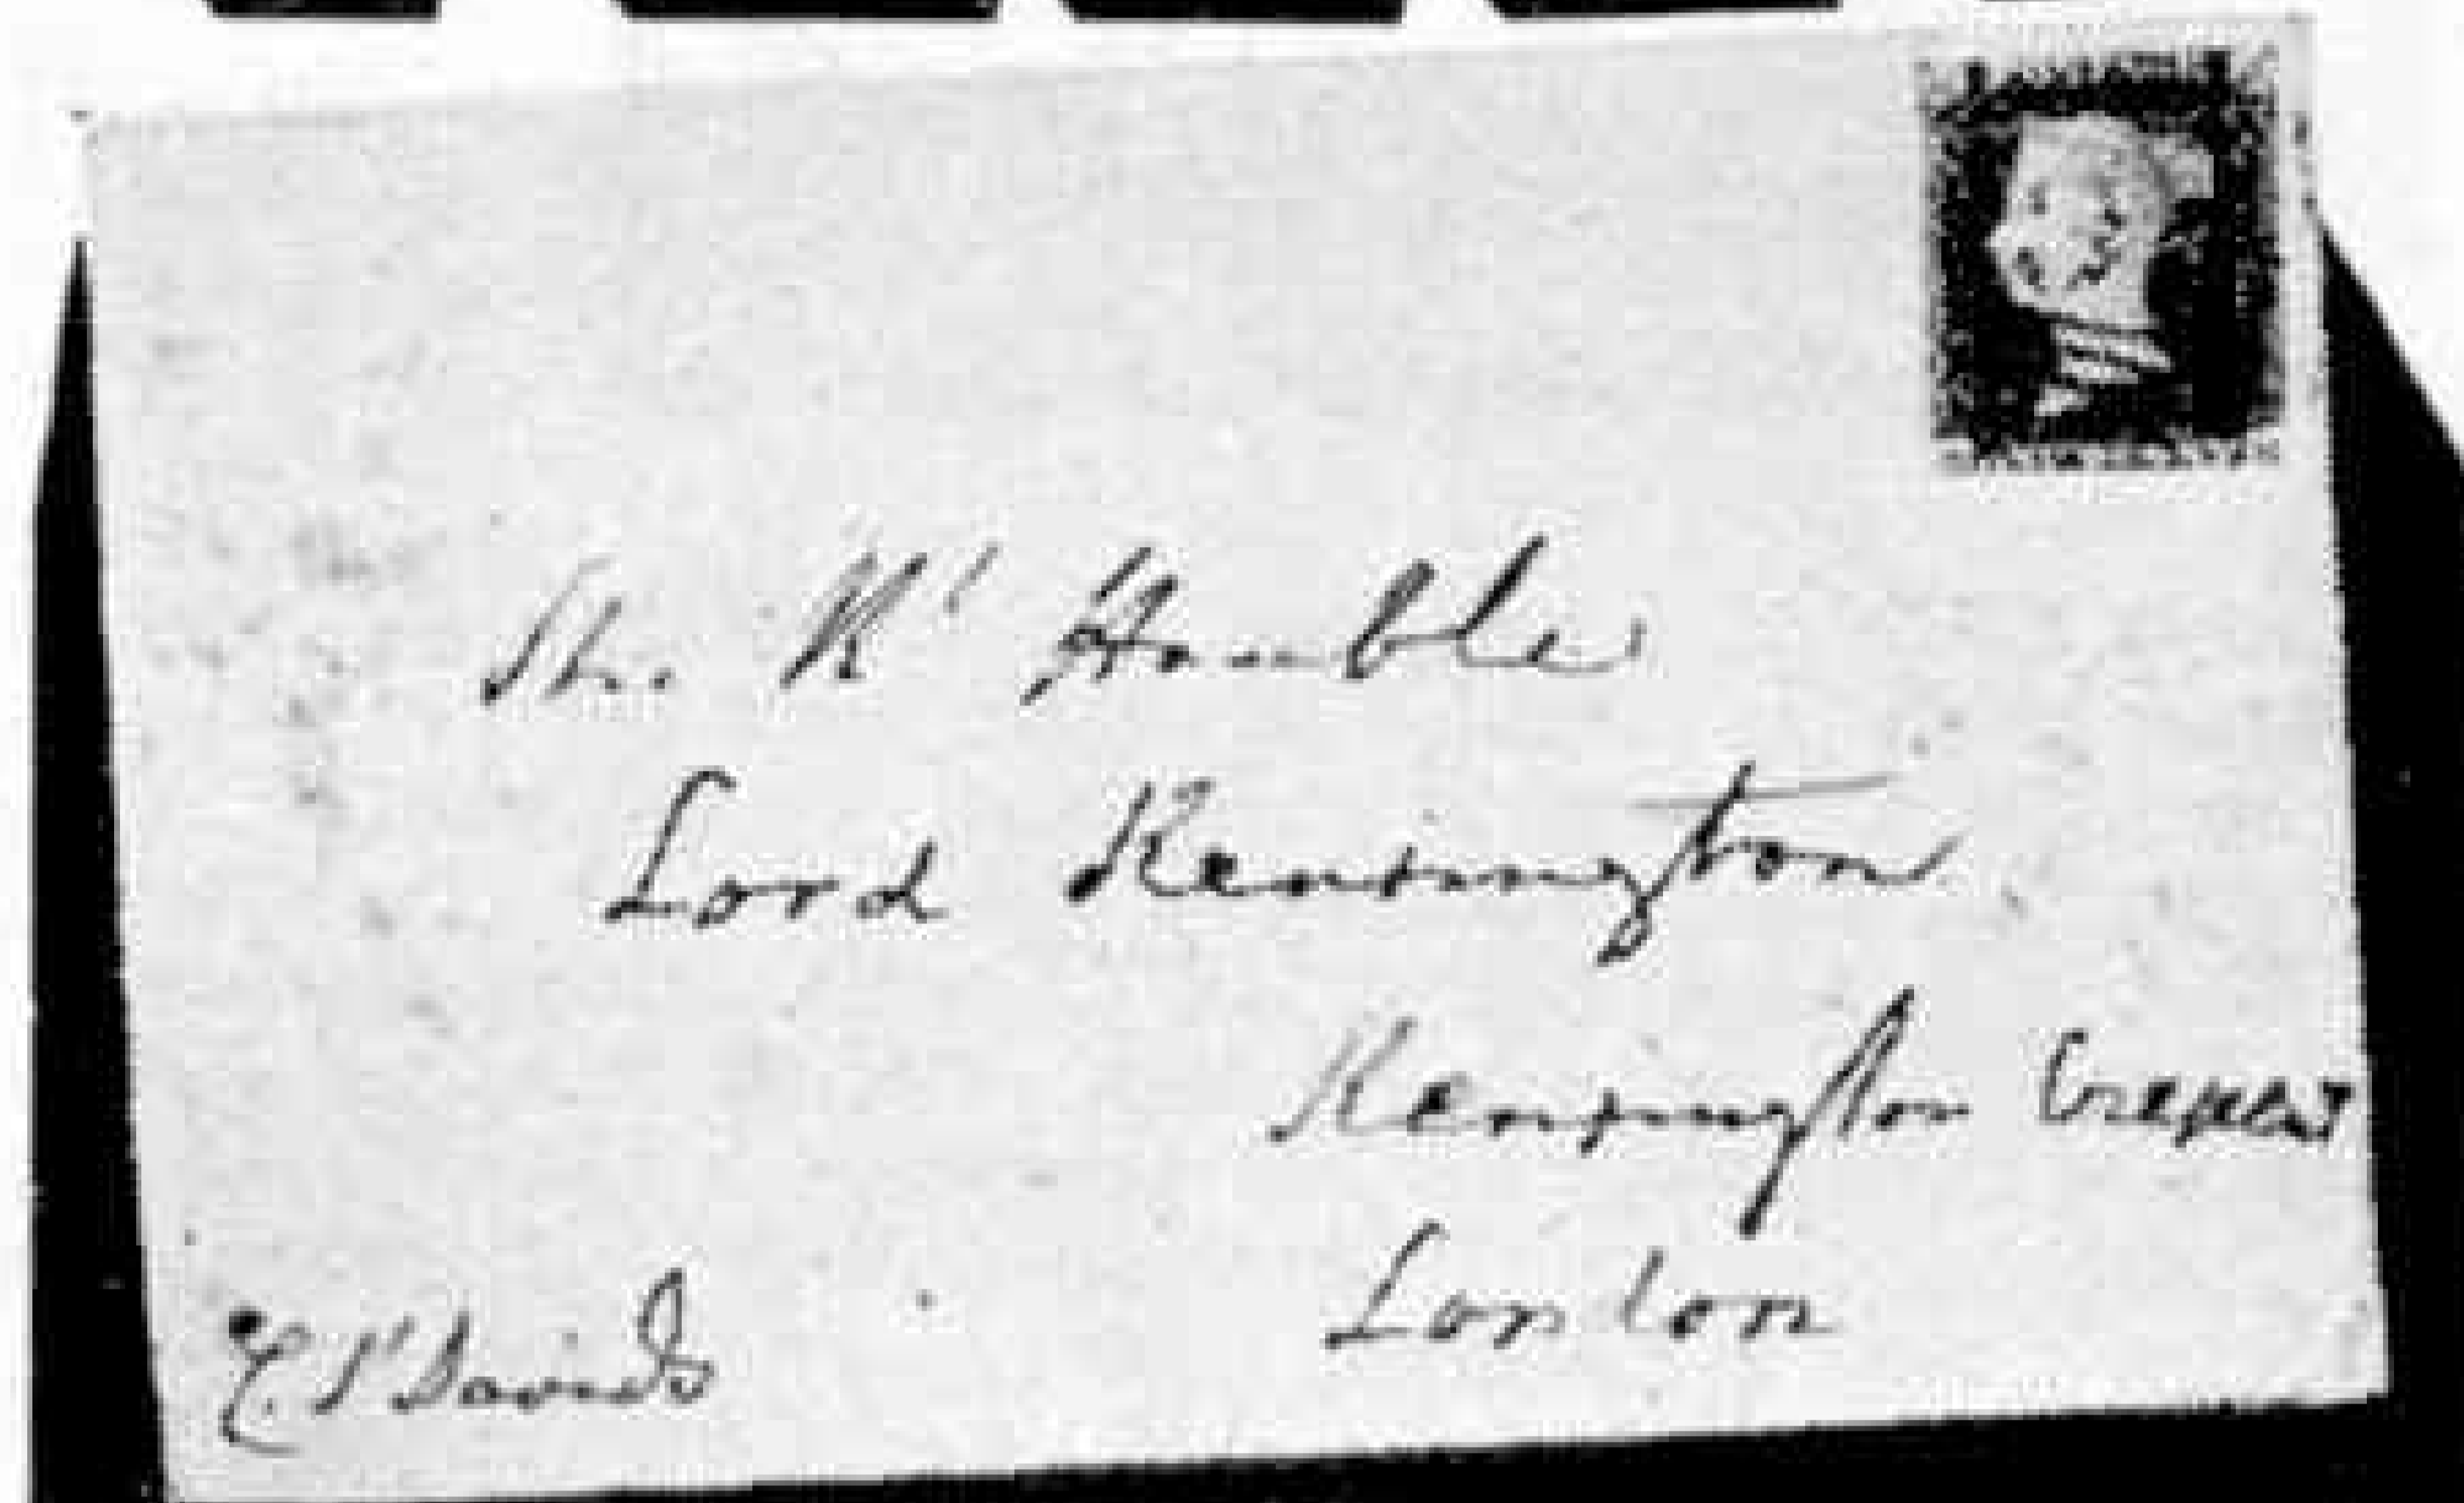 The Rt Honble
Lord Kensington
Kensington Crescent
London
C St Davids